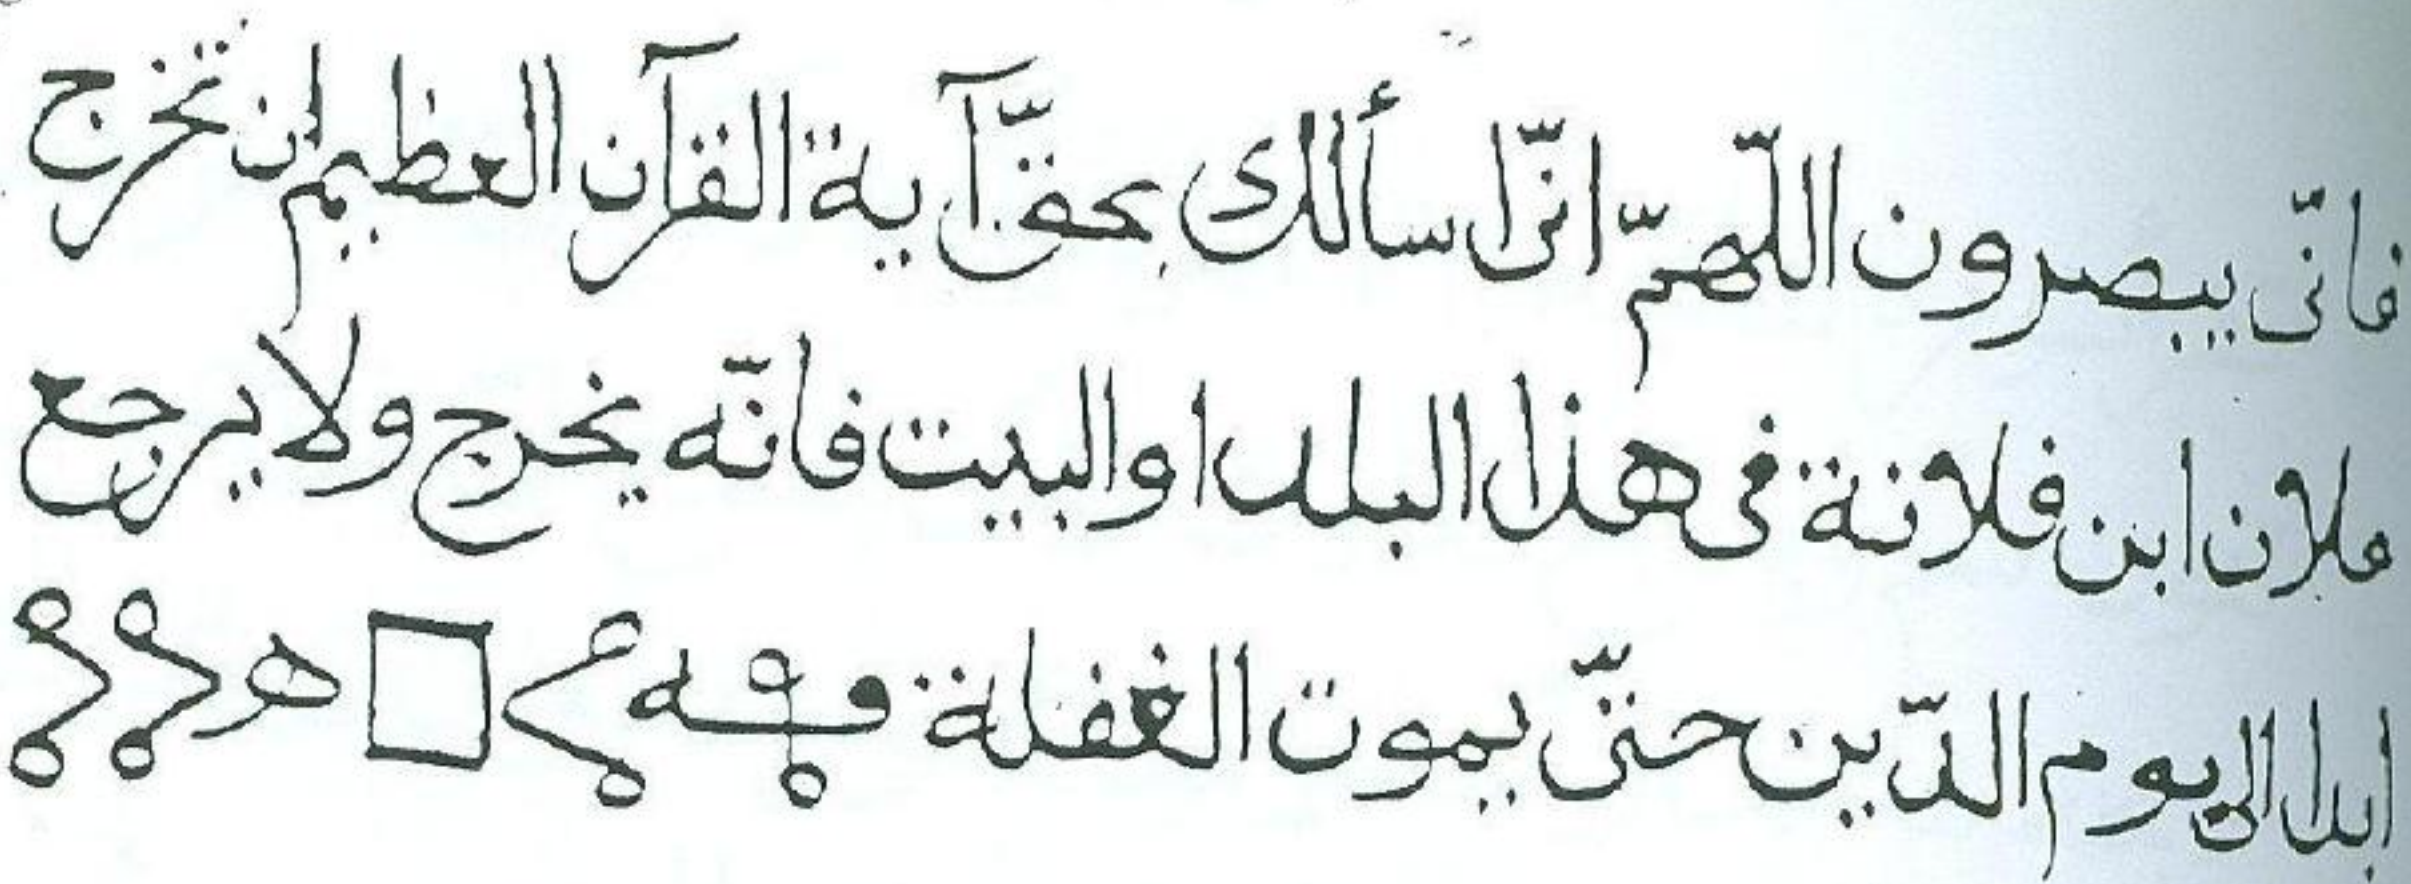 فانّى يبصرون اللّهمّ انّا سألك بحقّ آية القرآن العظيم ان تخرج
فلان ابن فلانة فى هذا البلد او البيت فانّه يخرج ولا يرجع
ابدا الى يوم الدّين حتّى يموت الغفلة